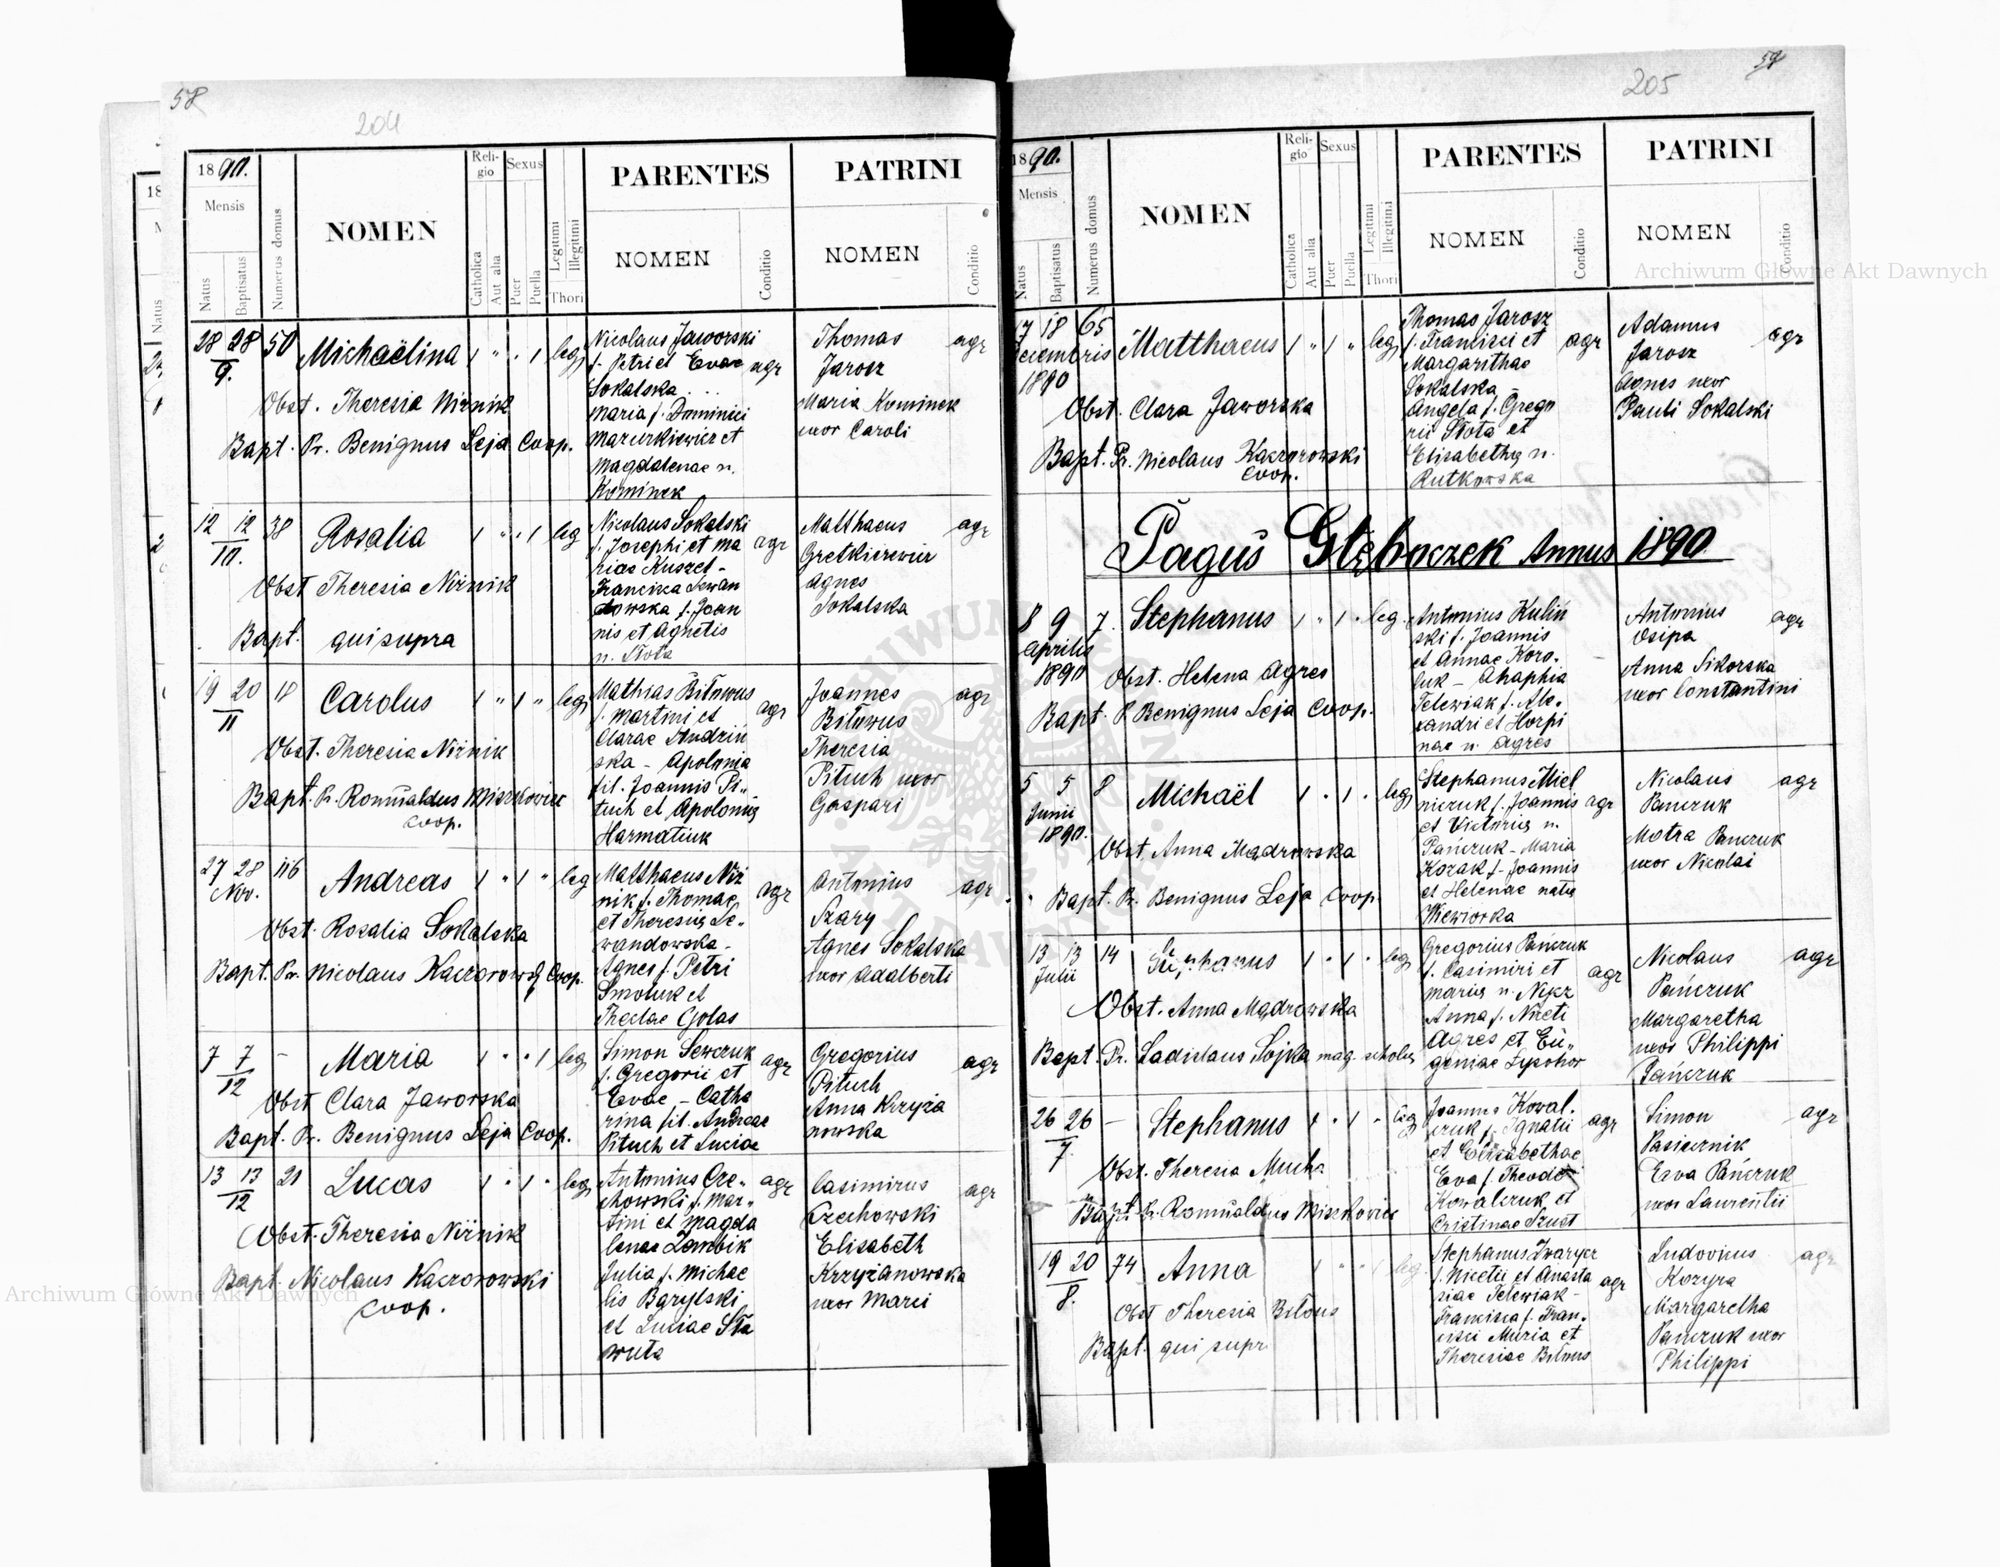 58
204
1890.
Mensis
Natus
Baptisatus
Numerus domus
NOMEN
Religio
Catholica
Aut alia
Sexus
Puer
Puella
Legitimi
Illegitimi
Thori
PARENTES
NOMEN
Conditio
PATRINI
NOMEN
Conditio
28 28 50 Michaëlina 1 " " 1 leg
9.
Obst. Theresia Niżnik
Bapt. Pr. Benignus Leja Coop.
Nicolaus Jaworski
f. Petri et Evae agr
Sokalska
Maria f. Dominici
Mazurkiewicz et
Magdalenae n.
Kominek
Thomas agr
Jarosz
Maria Kominek
uxor Caroli
12 12 38 Rosalia 1 " " 1 leg
10.
Obst Theresia Niżnik
Bapt. qui supra
Nicolaus Sokalski
f. Josephi et Ma agr
riae Kuszel -
Francisca Lewan
dowska f. Joan
nis et Agnetis
n. Słota
Matthaeus agr
Gretkiewicz
Agnes
Sokalska
19 20 18 Carolus 1 " 1 " leg
11
Obst. Theresia Niżnik
Bapt. Pr. Romualdus Miszkowicz
Coop.
Mathias Bitowus
f. Martini et agr
Clarae Andziń
ska - Apolonia
fil. Joannis Pi-
tuch et Apolonię
Harmatiuk
Joannes agr
Bitowus
Theresia
Pituch uxor
Gaspari
27 28 116 Andreas 1 " 1 " leg
Nov.
Obst. Rosalia Sokalska
Bapt. Pr. Nicolaus Kaczorowski Coop.
Matthaeus Niż
nik f. Thomae agr
et Theresię Le-
wandowska -
Agnes f. Petri
Smoluk et
Theclae Golas
Antonius agr
Szary
Agnes Sokalska
uxor Adalberti
7 7 - Maria 1 " " 1 leg
12
Obst Clara Jaworska
Bapt. Pr. Benignus Leja Coop.
Simon Sewczuk agr
f. Gregorii et
Evae - Catha
rina fil. Andreae
Pituch et Luciae
Gregorius agr
Pituch
Anna Krzyża
nowska
13 13 21 Lucas 1 " 1 " leg
12
Obst. Theresia Niżnik
Bapt. Nicolaus Kaczorowski
Coop.
Antonius Cze- agr
chowski f. Mar-
tini et Magda
lenae Zombik
Julia f. Michae
lis Barylski
et Luciae Sta
wuta
Casimirus agr
Czechowski
Elisabeth
Krzyżanowska
uxor Marci
59
205
1890.
Mensis
Natus
Baptisatus
Numerus domus
NOMEN
Religio
Catholica
Aut alia
Sexus
Puer
Puella
Legitimi
Illegitimi
Thori
PARENTES
NOMEN
Conditio
PATRINI
NOMEN
Conditio
17 18 65 Matthaeus 1 " 1 " leg
Decembris
1890
Obst. Clara Jaworska
Bapt. Pr. Nicolaus Kaczorowski
Coop.
Thomas Jarosz
f. Francisci et agr
Margarithae
Sokalska -
Angela f. Grego
rii Słota et
Elisabethę n.
Rutkowska
Adamus agr
Jarosz
Agnes uxor
Pauli Sokalski
Pagus Głęboczek Annus 1890
8 9 7. Stephanus 1 " 1 " leg.
Aprilis
1890
Obst. Helena Agres
Bapt. P. Benignus Leja Coop.
Antonius Kuliń
ski f. Joannis
et Annae Koro-
luk - Ahaphia
Telewiak f. Ale-
xandri et Horpi
nae n. Agres
Antonius agr
Osipa
Anna Sikorska
uxor Constantini
5 5 8 Michaël 1 " 1 " leg
Junii
1890.
Obst. Anna Mądrowska
Bapt. Pr. Benignus Leja Coop
Stephanus Miel
niczuk f. Joannis agr
et Victorię n.
Pańczuk - Maria
Kozak f. Joannis
et Helenae natę
Wiewiorka
Nicolaus agr
Pańczuk
Motra Pańczuk
uxor Nicolai
13 13 14 Stephanus 1 " 1 " leg
Julii
Obst. Anna Mądrowska
Bapt. Pr. Ladislaus Sojka mag. scholae
Gregorius Pańczuk
f. Casimiri et agr
Marię n.
Anna f. Niceti
Agres et Eu-
geniae Łysohor
Nicolaus agr
Pańczuk
Margaretha
uxor Philippi
Pańczuk
26 26 - Stephanus 1 " 1 " leg
7
Obst. Theresia Mucha
Bapt. Pr. Romualdus Miszkowicz
Joannes Kowal-
czuk f. Ignatii agr
et Elisabethae
Eva f. Theodori
Kowalczuk et
Cristinae Szust
Simon agr
Pasiecznik
Eva Pańczuk
uxor Laurentii
19 20 74 Anna 1 " " 1 leg.
8.
Obst Theresia Bitous
Bapt. qui supr
Stephanus Twarycz
f. Nicetii et Anasta agr
siae Telewiak -
Francisca f. Fran-
cisci Muzia et
Theresiae Bitous
Ludovicus agr
Kozyra
Margaretha
Pańczuk uxor
Philippi
Archiwum Główne Akt Dawnych
Archiwum Główne Akt Dawnych
ARCHIWUM GŁÓWNE
AKT DAWNYCH